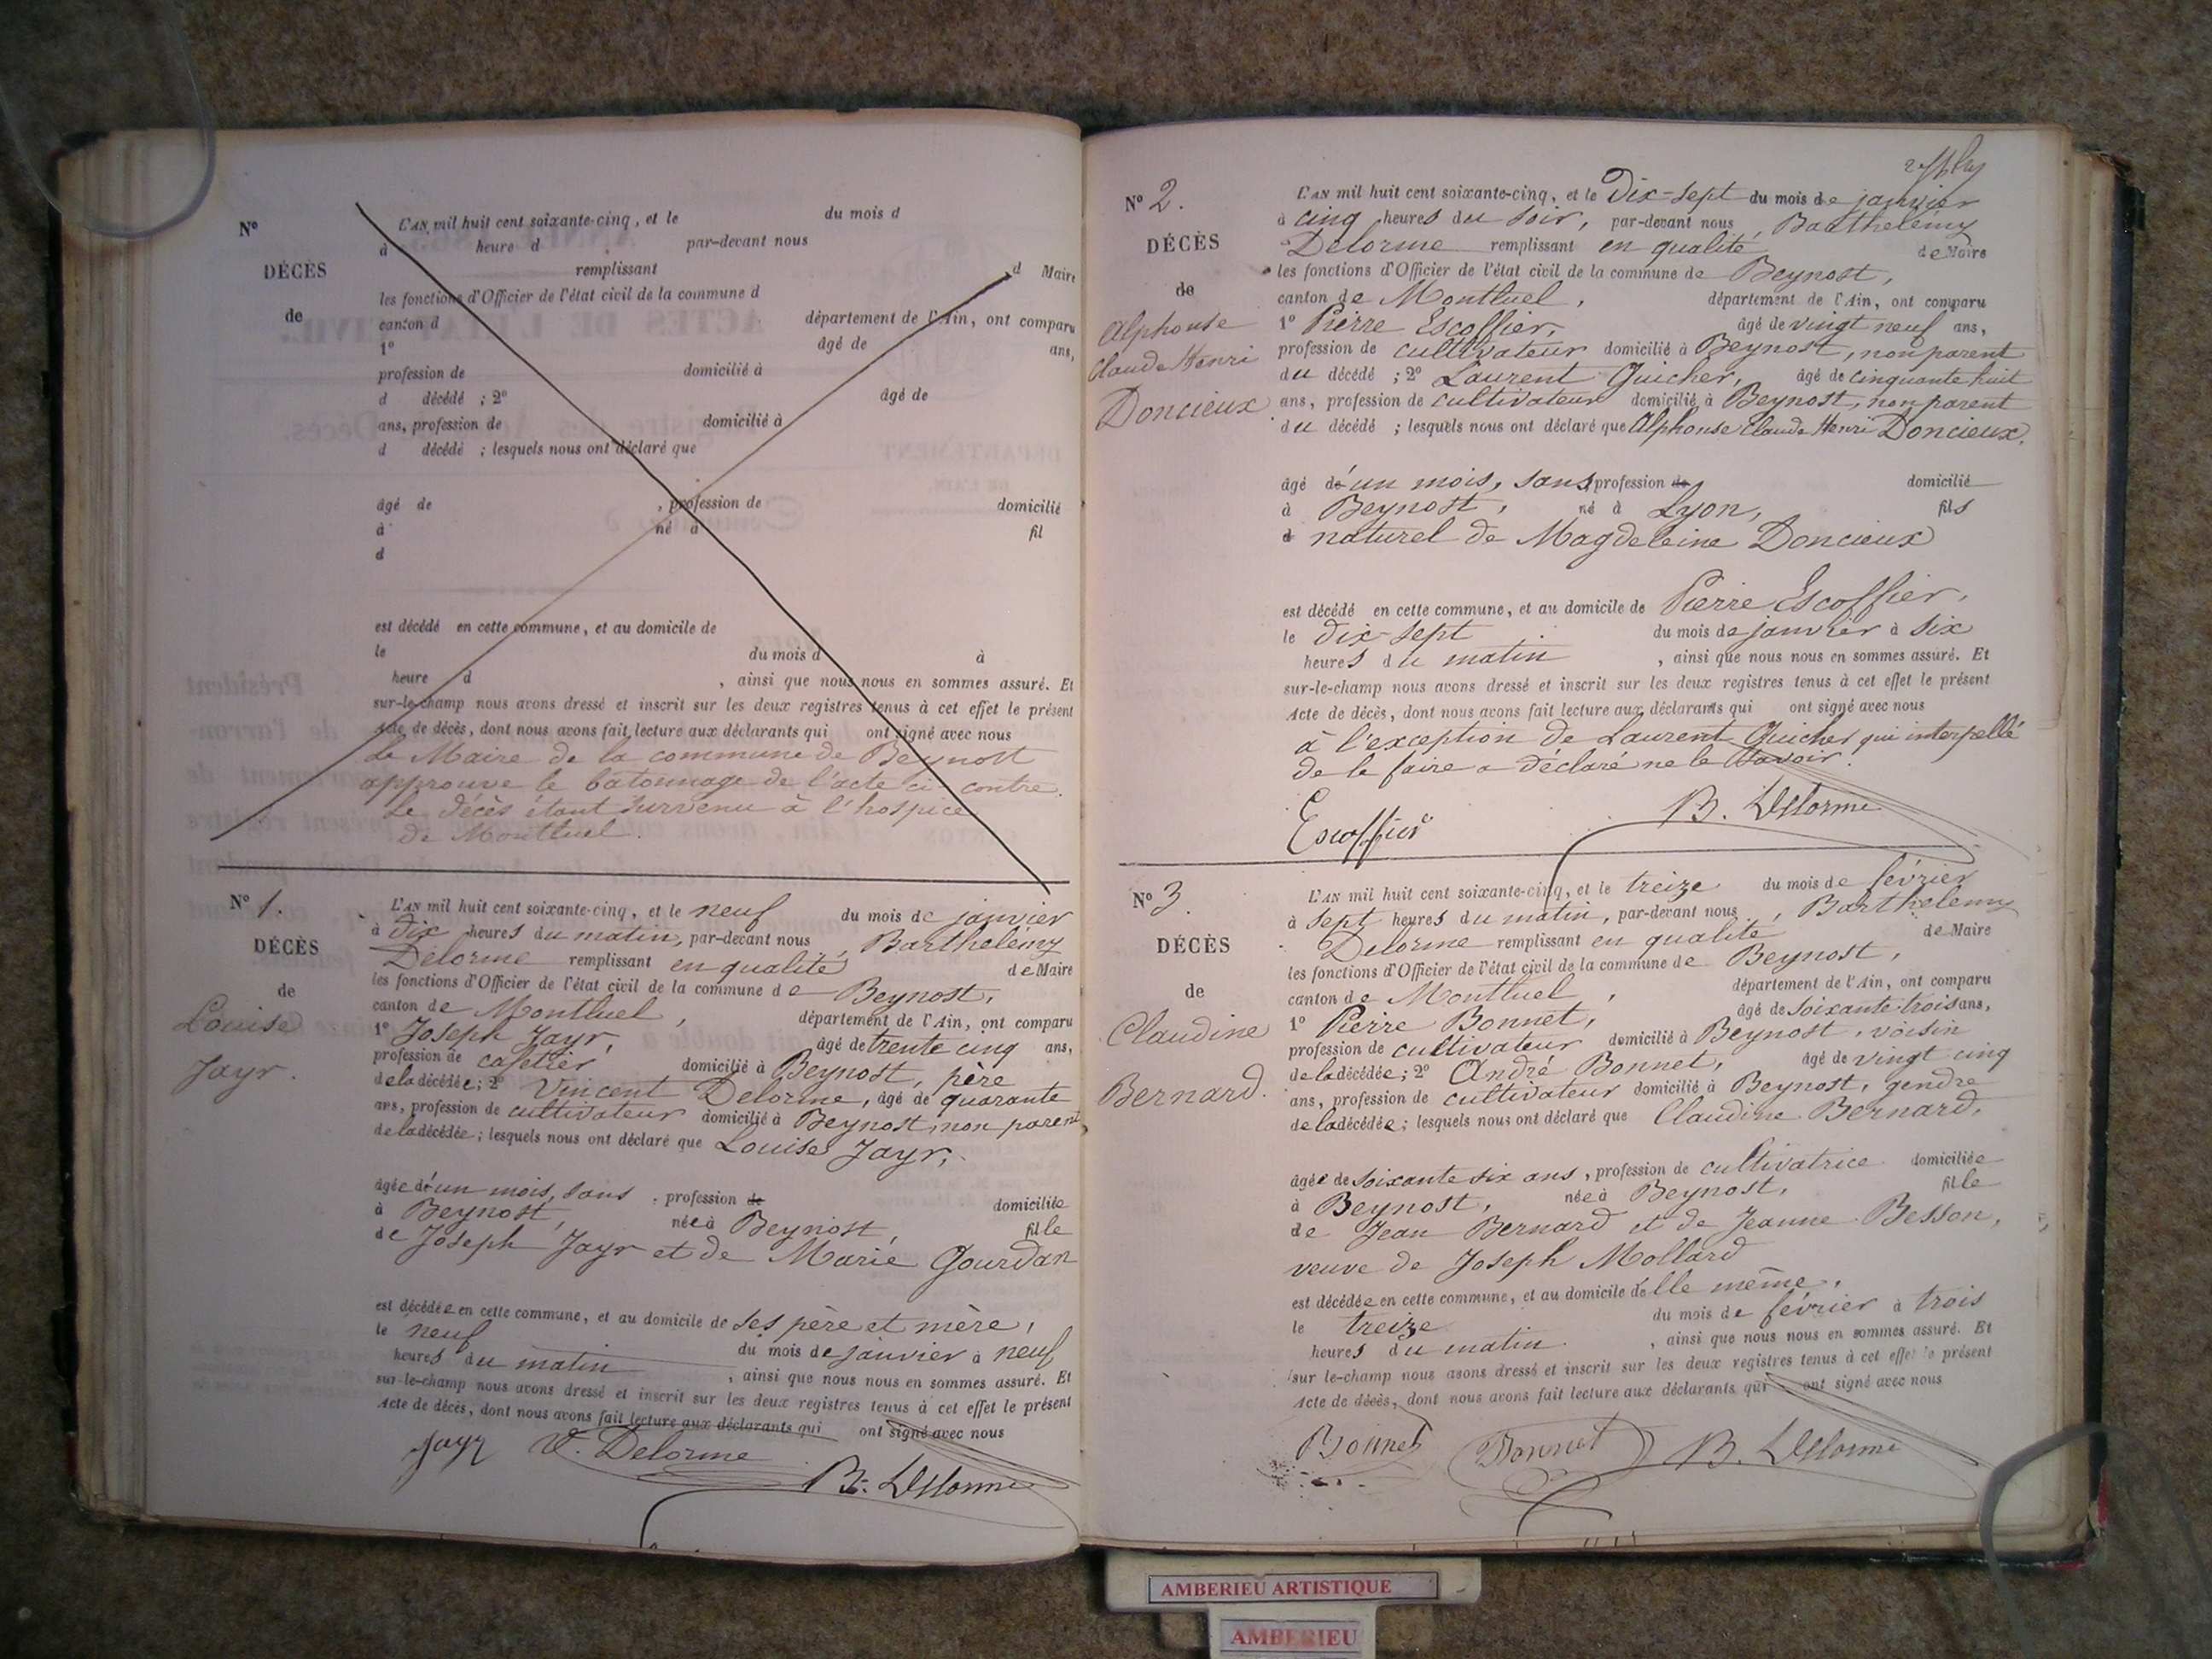 N°
DÉCÈS
de
L'AN mil huit cent soixante-cinq, et le du mois d
à heure d par-devant nous
remplissant d Maire
les fonctions d'Officier de l'état civil de la commune d
canton d département de l'Ain, ont comparu
1° âgé de ans,
profession de domicilié à
d décédé ; 2° âgé de
ans, profession de domicilié à
d décédé ; lesquels nous ont déclaré que
âgé de , profession de domicilié
à né à fil
d
est décédé en cette commune, et au domicile de
le du mois d à
heure d , ainsi que nous nous en sommes assuré. Et
sur-le-champ nous avons dressé et inscrit sur les deux registres tenus à cet effet le présent
Acte de décès, dont nous avons fait lecture aux déclarants qui ont signé avec nous
Le Maire de la commune de Beynost
approuve le bâtonnage de l'acte ci-contre.
Le décès étant survenu à l'hospice
de Montluel.
N° 1.
DÉCÈS
de
Louise
Jayr.
L'AN mil huit cent soixante-cinq, et le neuf du mois de janvier
à dix heures du matin, par-devant nous, Barthélemy
Delorme remplissant en qualité de Maire
les fonctions d'Officier de l'état civil de la commune de Beynost,
canton de Montluel, département de l'Ain, ont comparu
1° Joseph Jayr, âgé de trente cinq ans,
profession de cafetier domicilié à Beynost, père
de la décédée; 2° Vincent Delorme, âgé de quarante
ans, profession de cultivateur domicilié à Beynost, non parent
de la décédée; lesquels nous ont déclaré que Louise Jayr,
âgée d'un mois, sans profession de domiciliée
à Beynost, née à Beynost, fille
de Joseph Jayr et de Marie Gourdan
est décédée en cette commune, et au domicile de ses père et mère,
le neuf du mois de janvier à neuf
heures du matin , ainsi que nous nous en sommes assuré. Et
sur-le-champ nous avons dressé et inscrit sur les deux registres tenus à cet effet le présent
Acte de décès, dont nous avons fait lecture aux déclarants qui ont signé avec nous
Jayr V. Delorme B. Delorme
N° 2.
DÉCÈS
de
Alphonse
Claude Henri
Doncieux
L'AN mil huit cent soixante-cinq, et le Dix-sept du mois de janvier
à cinq heures du soir, par-devant nous, Barthélémy
Delorme remplissant en qualité de Maire
les fonctions d'Officier de l'état civil de la commune de Beynost,
canton de Montluel, département de l'Ain, ont comparu
1° Pierre Escoffier, âgé de vingt neuf ans,
profession de cultivateur domicilié à Beynost, non parent
du décédé ; 2° Laurent Guicher, âgé de cinquante huit
ans, profession de cultivateur domicilié à Beynost, non parent
du décédé ; lesquels nous ont déclaré que Alphonse Claude Henri Doncieux,
âgé d'un mois, sans profession de domicilié
à Beynost, né à Lyon, fils
d naturel de Magdeleine Doncieux
est décédé en cette commune, et au domicile de Pierre Escoffier,
le dix-sept du mois de janvier à six
heures du matin , ainsi que nous nous en sommes assuré. Et
sur-le-champ nous avons dressé et inscrit sur les deux registres tenus à cet effet le présent
Acte de décès, dont nous avons fait lecture aux déclarants qui ont signé avec nous
à l'exception de Laurent Guicher qui interpellé
de le faire a déclaré ne le savoir.
Escoffier B. Delorme
N° 3.
DÉCÈS
de
Claudine
Bernard.
L'AN mil huit cent soixante-cinq, et le treize du mois de février
à sept heures du matin, par-devant nous, Barthélemy
Delorme remplissant en qualité de Maire
les fonctions d'Officier de l'état civil de la commune de Beynost,
canton de Montluel, département de l'Ain, ont comparu
1° Pierre Bonnet, âgé de soixante-trois ans,
profession de cultivateur domicilié à Beynost, voisin
de la décédée; 2° André Bonnet, âgé de vingt cinq
ans, profession de cultivateur domicilié à Beynost, gendre
de la décédée; lesquels nous ont déclaré que Claudine Bernard,
âgée de soixante six ans, profession de cultivatrice domiciliée
à Beynost, née à Beynost, fille
de Jean Bernard et de Jeanne Besson,
veuve de Joseph Mollard
est décédée en cette commune, et au domicile d'elle même,
le treize du mois de février à trois
heures du matin , ainsi que nous nous en sommes assuré. Et
sur le-champ nous avons dressé et inscrit sur les deux registres tenus à cet effet le présent
Acte de décès, dont nous avons fait lecture aux déclarants qui ont signé avec nous
Bonnet Bonnet B. Delorme
AMBERIEU ARTISTIQUE
AMBERIEU